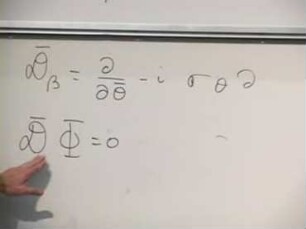 𝒟̄_β = ∂/∂θ̄ - i σ θ ∂
𝒟̄ Φ = 0